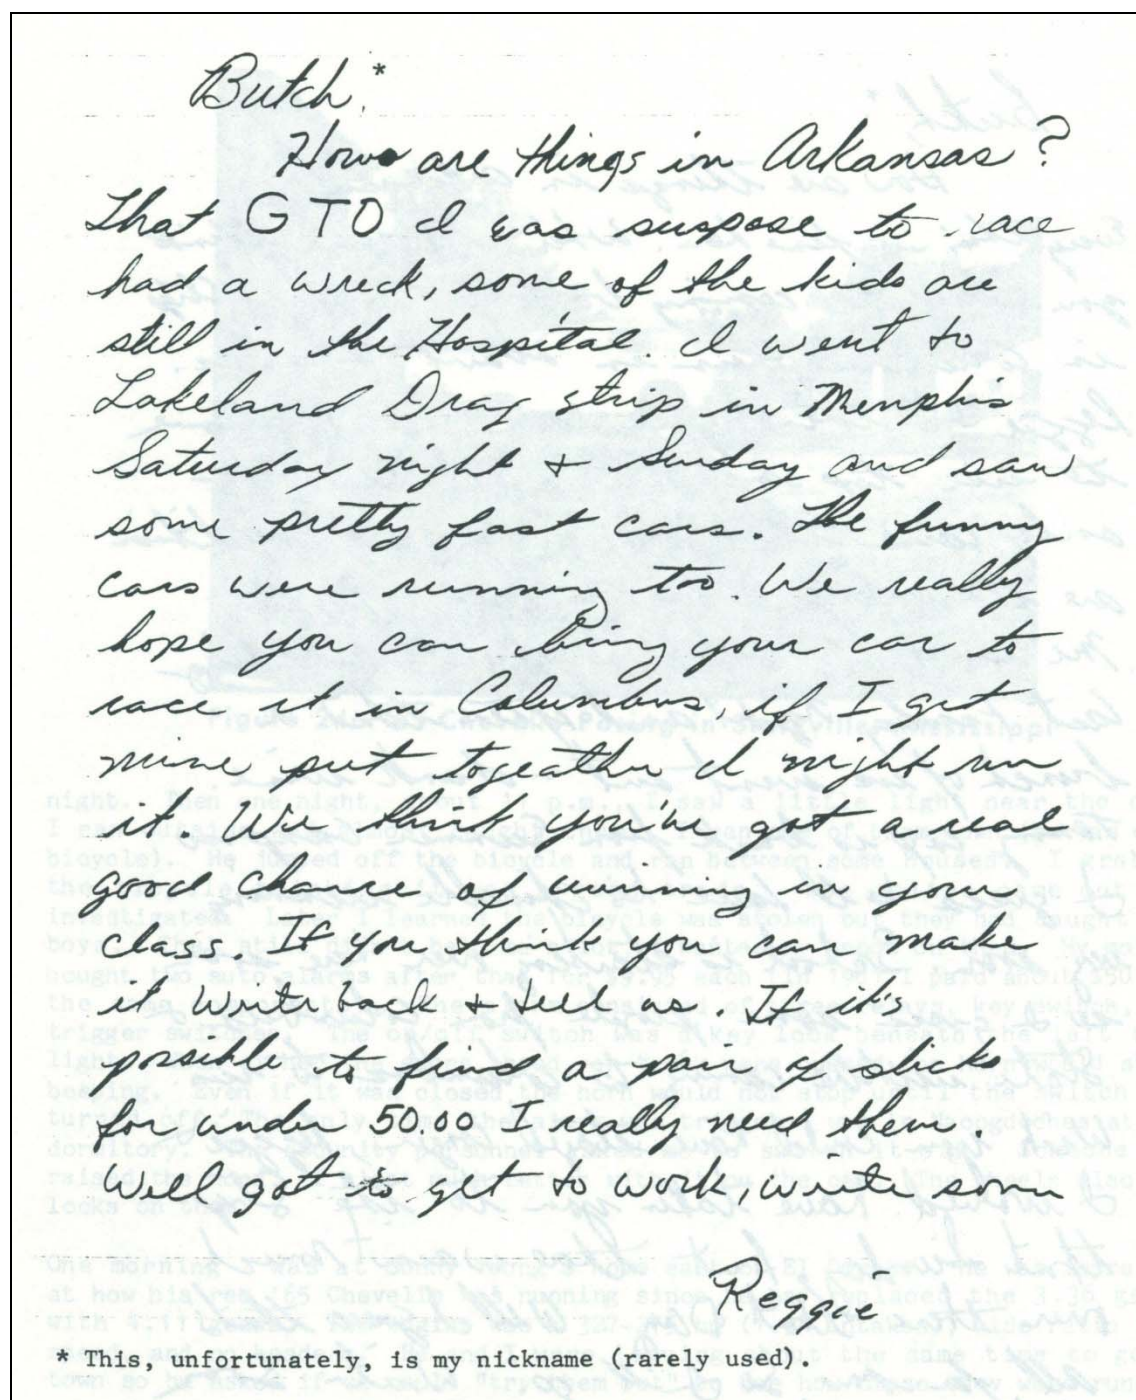 Butch,*
How are things in Arkansas?
That GTO I was suspose to race
had a wreck, some of the kids are
still in the Hospital. I went to
Lakeland Drag strip in Memphis
Saturday night & Sunday and saw
some pretty fast cars. The funny
cars were running too. We really
hope you can bring your car to
race it in Columbus, if I get
mine put togeather I might run
it. We think you've got a real
good chance of winning in your
class. If you think you can make
it write back & tell us. If it's
possible to find a pair of slicks
for under 50.00 I really need them.
Well got to get to work, write soon
Reggie
* This, unfortunately, is my nickname (rarely used).